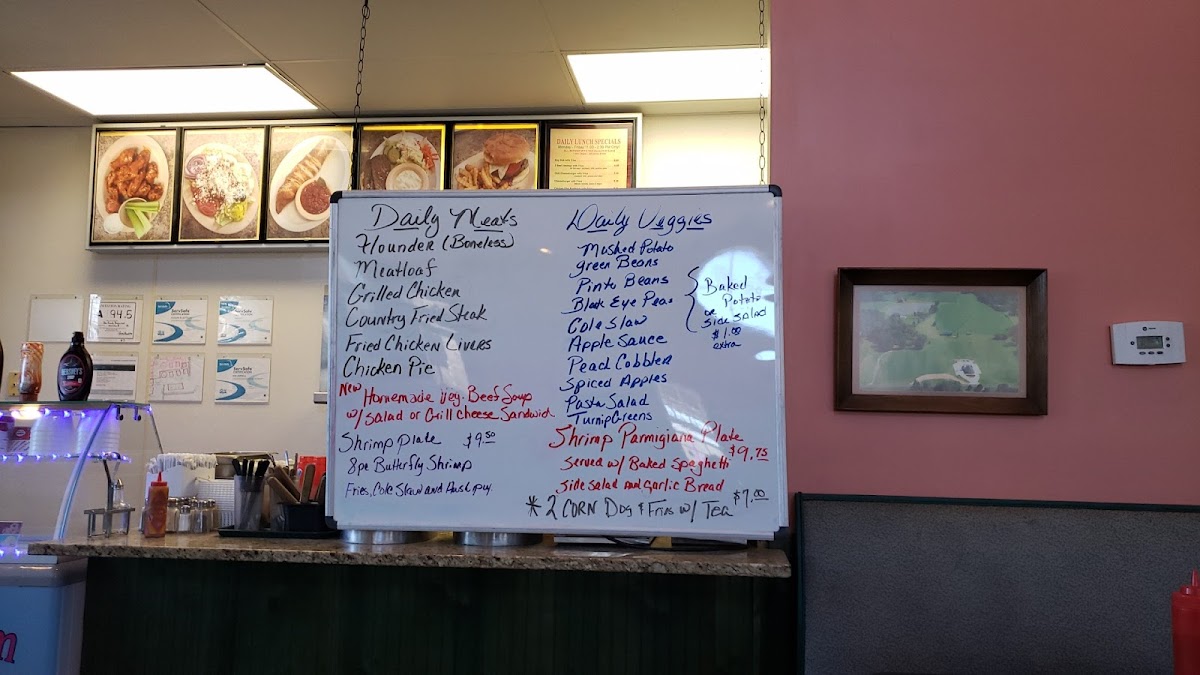 DAILY LUNCH SPECIALS
A 94.5
HERSHEY'S
Daily Meats
Flounder (Boneless)
Meatloaf
Grilled Chicken
Country Fried Steak
Fried Chicken Livers
Chicken Pie
New Homemade Veg. Beef Soup
w/ Salad or Grill Cheese Sandwich
Shrimp Plate $9.50
8pc Butterfly Shrimp
Fries, Cole Slaw and Hushpuy
Daily Veggies
Mashed Potato
green Beans
Pinto Beans
Black Eye Peas
Cole Slaw
Apple Sauce
Peach Cobbler
Spiced Apples
Pasta Salad
Turnip Greens
Baked
Potato
or
Side Salad
$1.00
extra
Shrimp Parmigiana Plate
$9.75
Served w/ Baked Spaghetti
Side Salad and Garlic Bread
* 2 CORN Dog & Fries w/ Tea $7.00